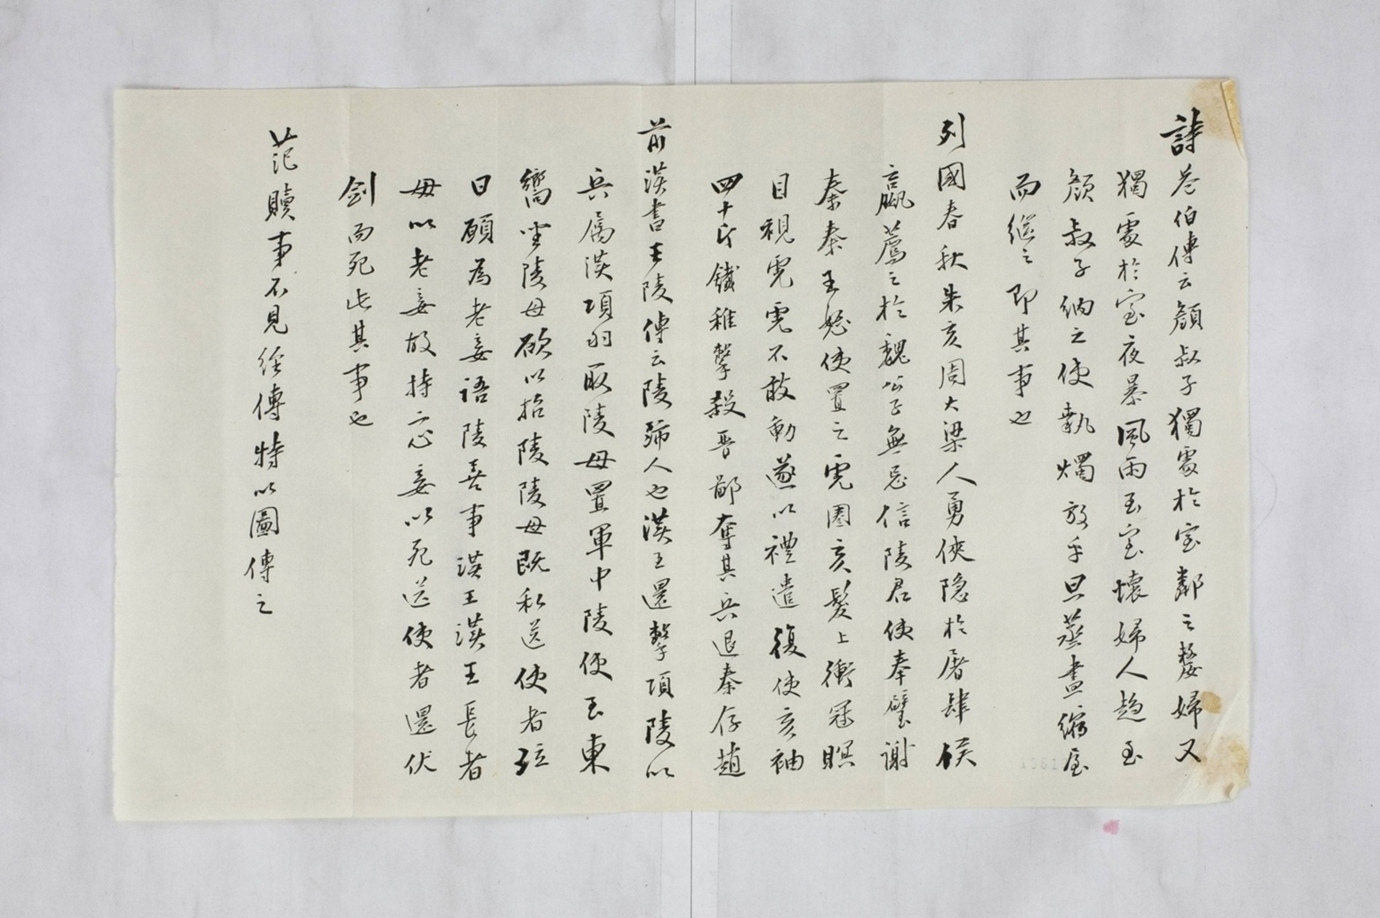 詩巷伯傳云顏叔子獨處於室鄰之嫠婦又
獨處於室夜暴風雨至室壞婦人趨至
顏叔子納之使執燭放乎旦蒸盡縮屋
而繼之即其事也
列國春秋朱亥周大梁人勇俠隐於屠肆侯
嬴薦之於魏公子無忌信陵君使奉璧謝
秦秦王怒使置之虎圈亥髮上衝冠瞑
目視虎虎不敢動遂以禮遣復使亥袖
四十斤鐵椎擊殺晉鄙奪其兵退秦存趙
前漢書王陵傳云陵沛人也漢王還擊項陵以
兵屬漢項羽取陵母置軍中陵使至東
嚮坐陵母欲以招陵陵母既私送使者泣
曰願為老妾語陵善事漢王漢王長者
毋以老妾故持二心妾以死送使者還伏
劍而死此其事也
范贖事不見經傳特以圖傳之